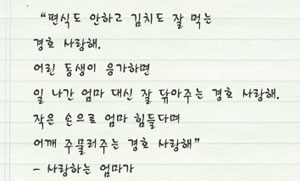 “편식도 안하고 김치도 잘 먹는
경호 사랑해.
어린 동생이 응가하면
일 나간 엄마 대신 잘 닦아주는 경호 사랑해.
작은 손으로 엄마 힘들다며
어깨 주물러주는 경호 사랑해”
- 사랑하는 엄마가